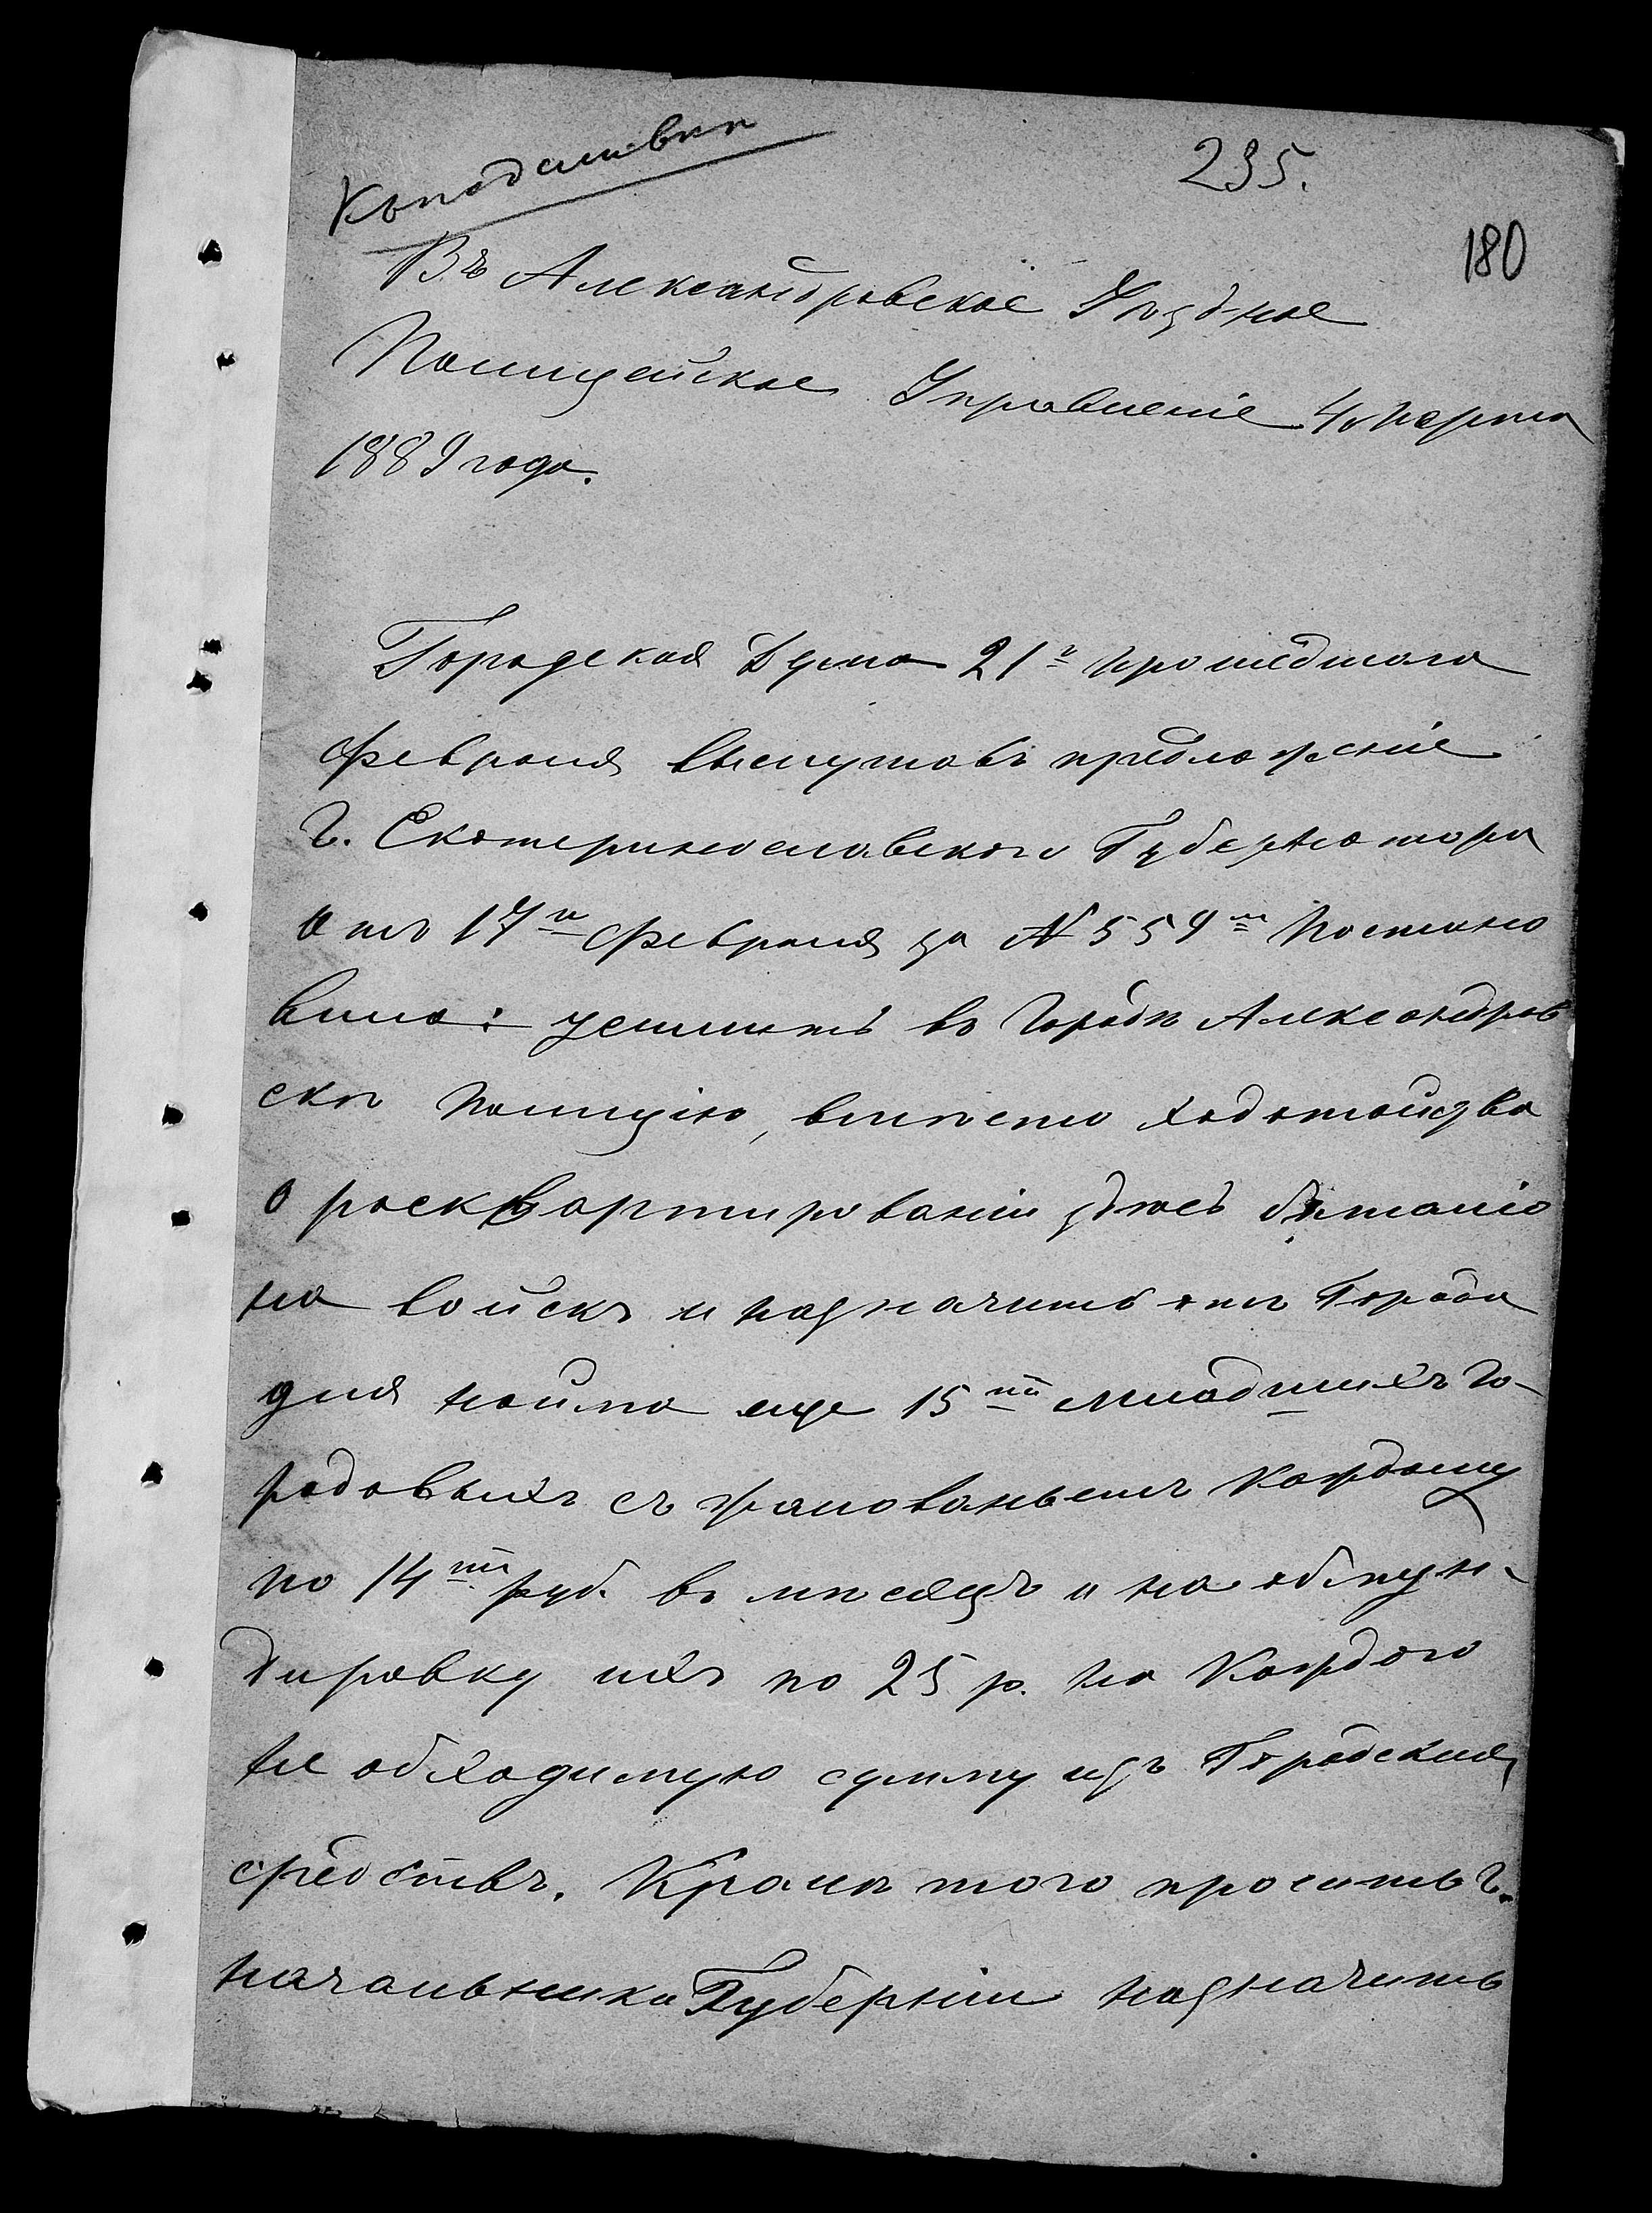 235.
180
Въ Александровское Уѣздное
Полицейское Управленіе 4 марта
1889 года.
Городская Дума 21го прошедшаго
февраля выслушавъ предложеніе
Г. Екатеринославскаго Губернатора
отъ 17го февраля за № 559м постано
вила: усилить въ Городѣ Александров
скѣ полицію, вмѣсто ходатайства
о расквартированіи здѣсь баталіо
на войскъ и назначить отъ Города
для найма еще 15ти младшихъ го-
родовыхъ съ жалованьемъ каждому
по 14ти руб. въ мѣсяцъ и на обмун-
дировку ихъ по 25 р. на каждого
не обходимую сумму изъ Городскихъ
средствъ. Кромѣ того просить Г.
начальника Губерніи назначить